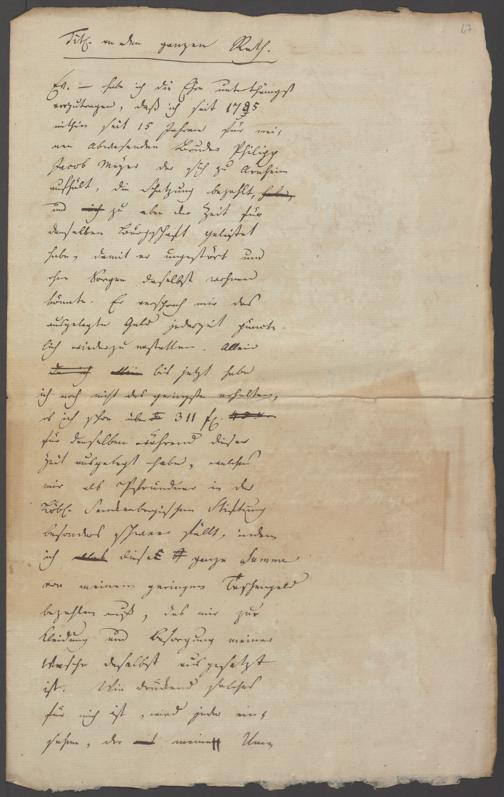 Tit. an den ganzen Rath.
Ew. — habe ich die Ehre unterthänigst
vorzutragen, daß ich seit 1795
mithin seit 15 Jahren für mei-
nen abwesenden Bruder Philipp
Jacob Meyer der sich zu Arnheim
aufhält, die Schatzung bezahlt, habe,
und ich zu eben der Zeit für
denselben Bürgschaft geleistet
habe, damit er ungestört und
ohne Sorgen daselbst wohnen
könnte. Er versprach mir das
ausgelegte Geld jederzeit pünct-
lich wieder zu erstatten. Allein
bis jetzt habe
ich noch nicht das geringste erhalten,
ob ich schon über 311 fl.
für denselben während dieser
Zeit ausgelegt habe, welches
mir als Pfründner in der
Löbl. Senckenbergischen Stiftung
besonders schwer fällt, indem
ich diese ganze Summa
von meinem geringen Taschengeld
bezahlen muß, das mir zur
Kleidung und Besorgung meiner
Wäsche daselbst ausgesetzt
ist. Wie drückend solches
für mich ist, wird jeder ein-
sehen, der meine Um-